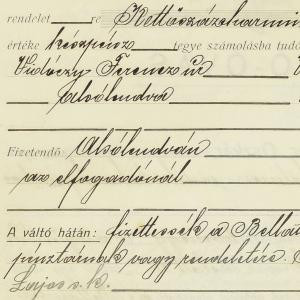 rendelet re Kettőszázharmin
értéke készpénz tegye számolásba tudó
Vidóczy Ferencz úr
Alsólendva
Fizetendő: Alsólendván
az elfogadónál
A váltó hátán: fizettessék a Bellat
pénztárnak vagy rendeletére.
Lajos s. k.